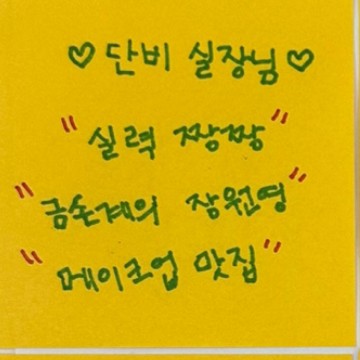 ♡단비 실장님♡
"실력 짱짱"
"금손계의 장원영"
"메이크업 맛집"